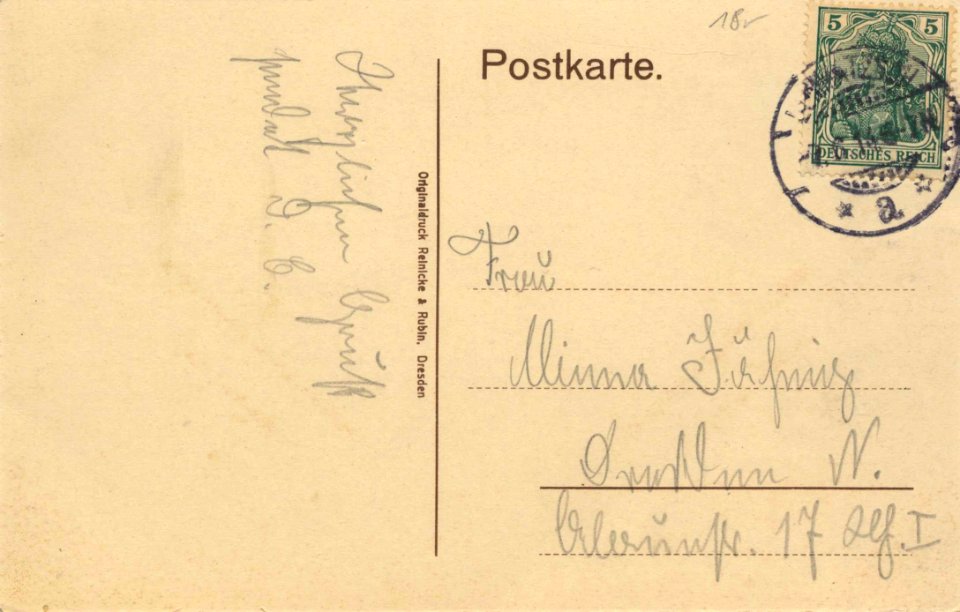 18.-
Postkarte.
5 5
DEUTSCHES REICH
* a *
Herzlichen Gruß
sendet D. C.
Originaldruck Reinicke & Rubin, Dresden
Frau
Minna Jähnig
Dresden N.
Alaunstr. 17 I